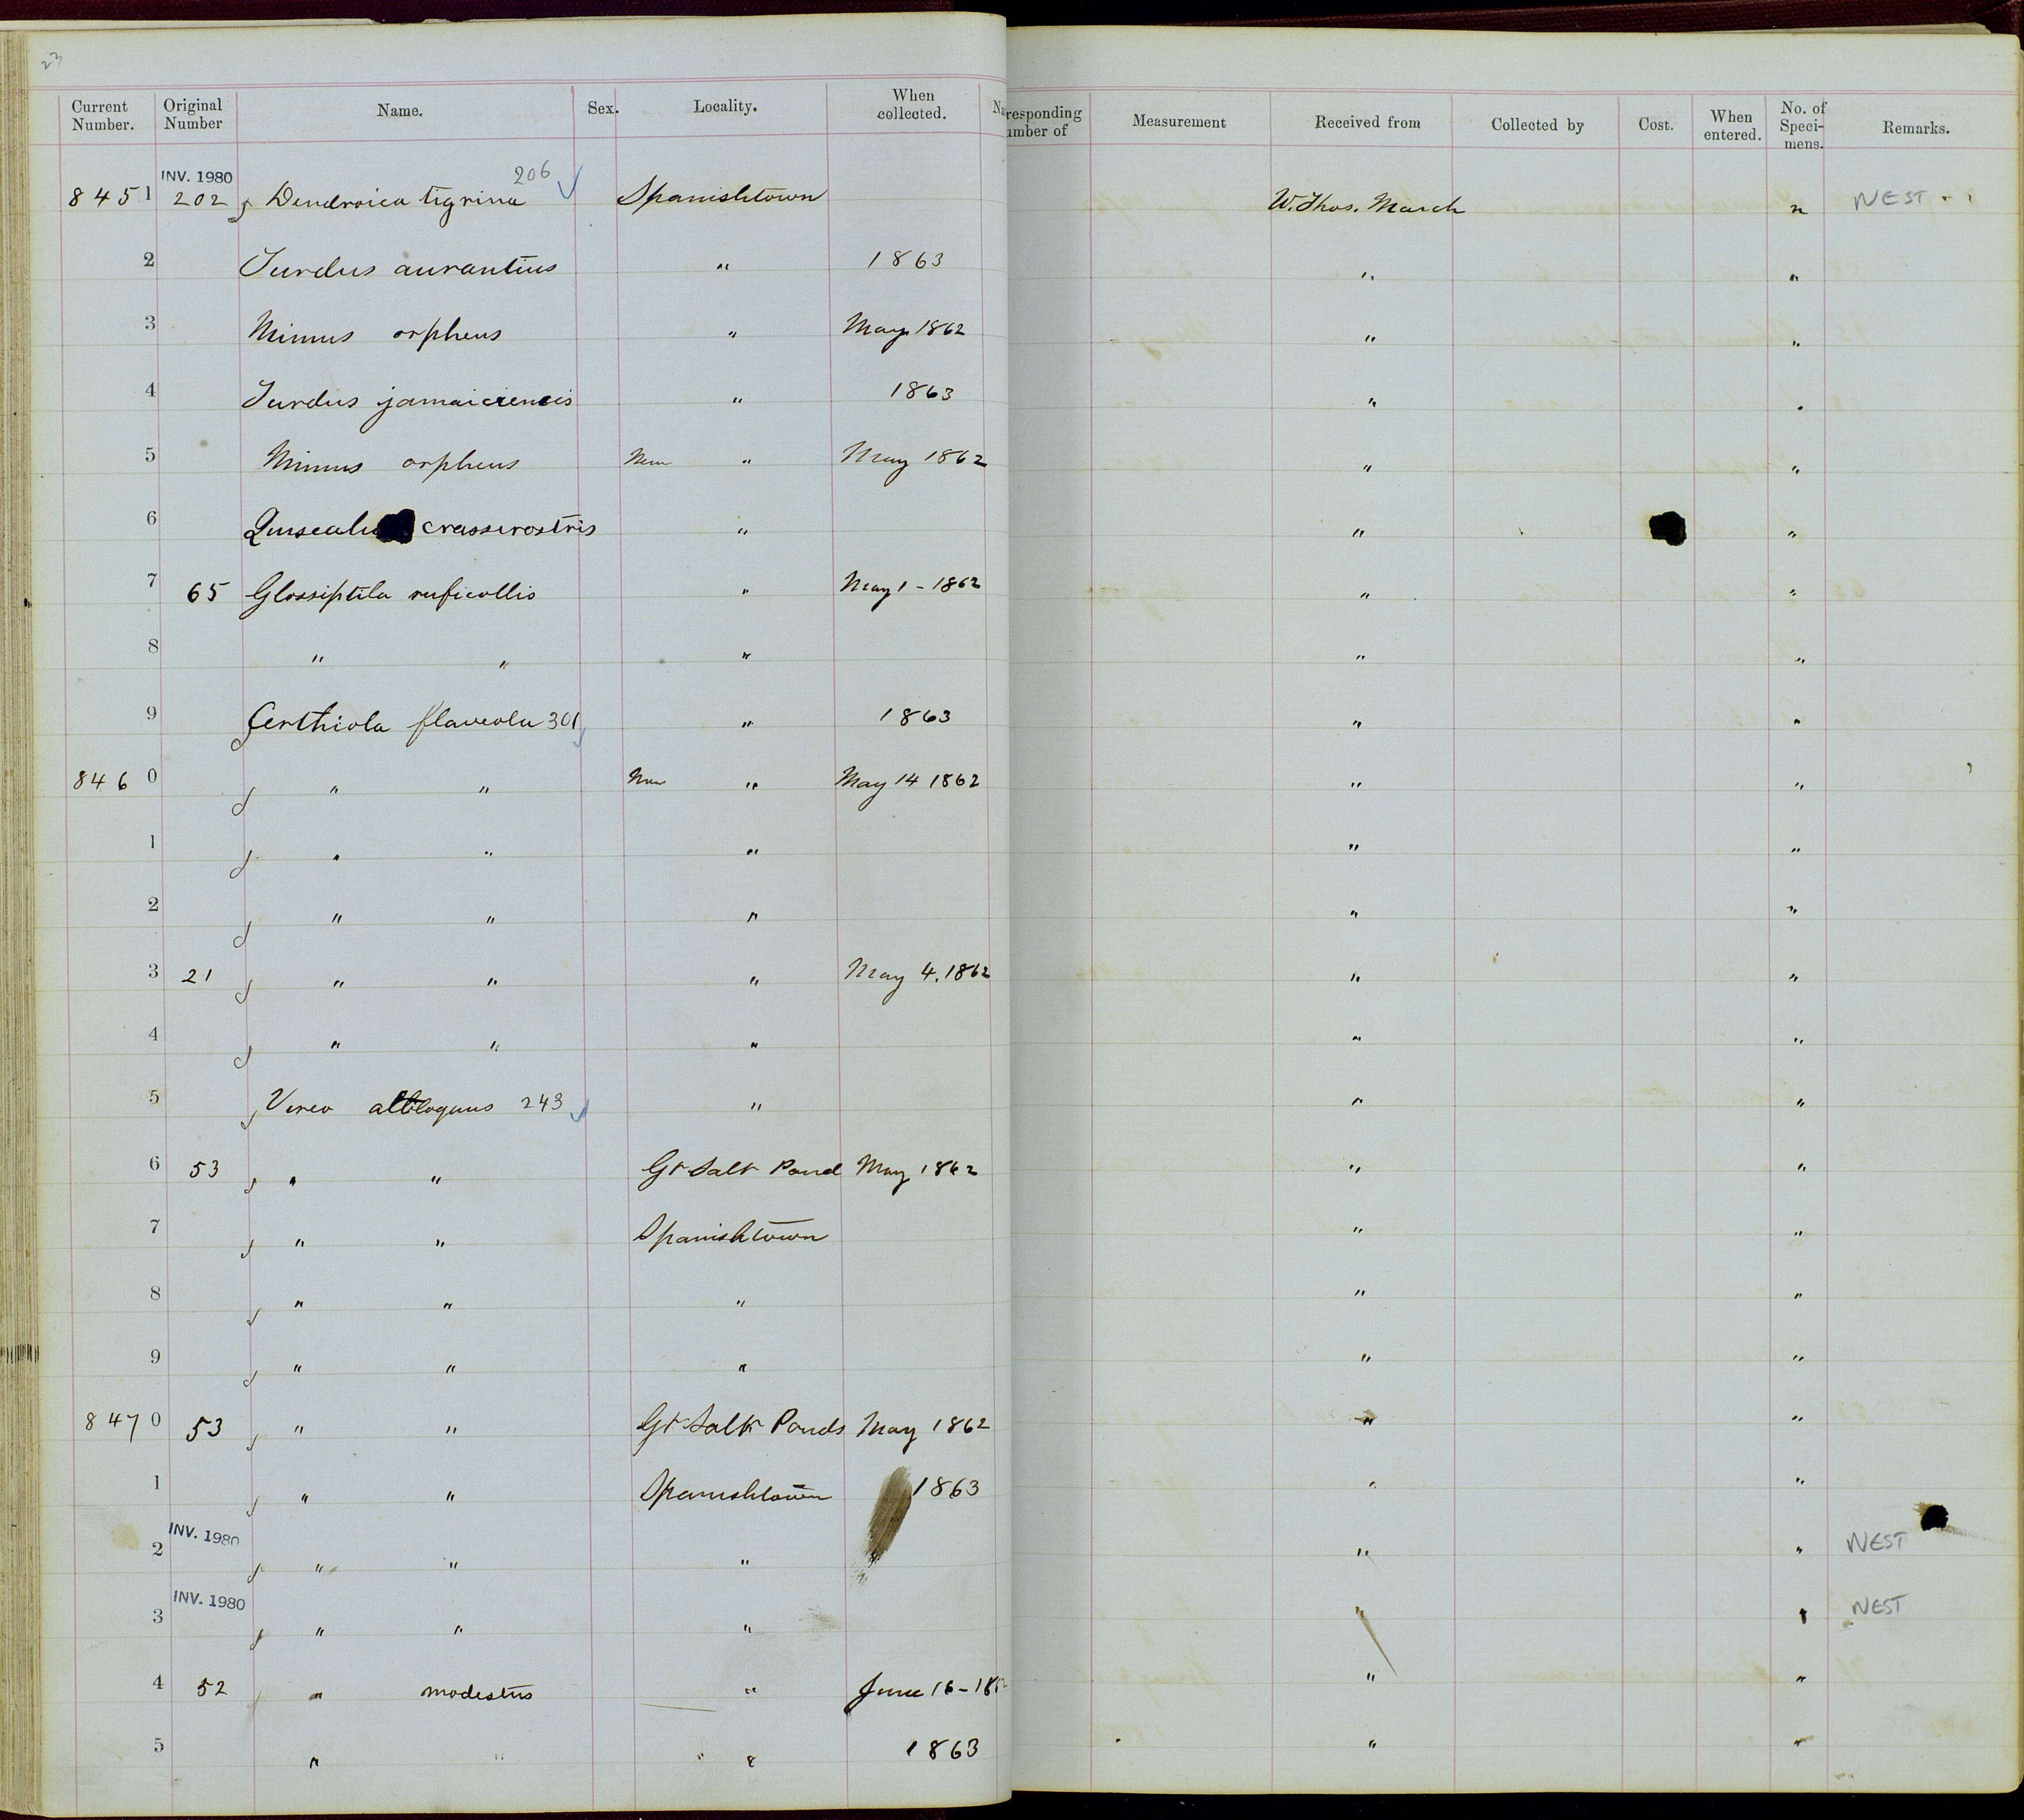 23
Current Number. Original Number Name. Sex. Locality. When collected. responding umber of Measurement Received from Collected by Cost. When entered. No. of Speci- mens. Remarks.
INV. 1980 206
8451 202 Dendroica tigrina Spanishtown W. Thos. March n NEST
2 Turdus aurantius " 1863 " "
3 Mimus orpheus " May 1862 " "
4 Turdus jamaicensis " 1863 " "
5 Mimus orpheus " May 1862 " "
6 crassirostris " " "
7 65 Glossiptila ruficollis " May 1 - 1862 " "
8 " " " " "
9 Certhiola flaveola 301 " 1863 " "
8460 " " " May 14 1862 " "
1 " " " " "
2 " " " " "
3 21 " " " May 4. 1862 " "
4 " " " " "
5 Vireo 243 " " "
6 53 " " Gt Salt Pond May 1862 " "
7 " " Spanishtown " "
8 " " " " "
9 " " " " "
8470 53 " " Gt Salt Ponds May 1862 " "
1 " " Spanishtown 1863 " "
INV. 1980
2 " " " " " NEST
INV. 1980
3 " " " " " NEST
4 52 " modestus " June 16 - " "
5 " " " " 1863 " "